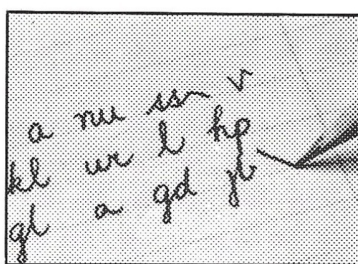 a nu ss v
kl ur l hp
gl a gd